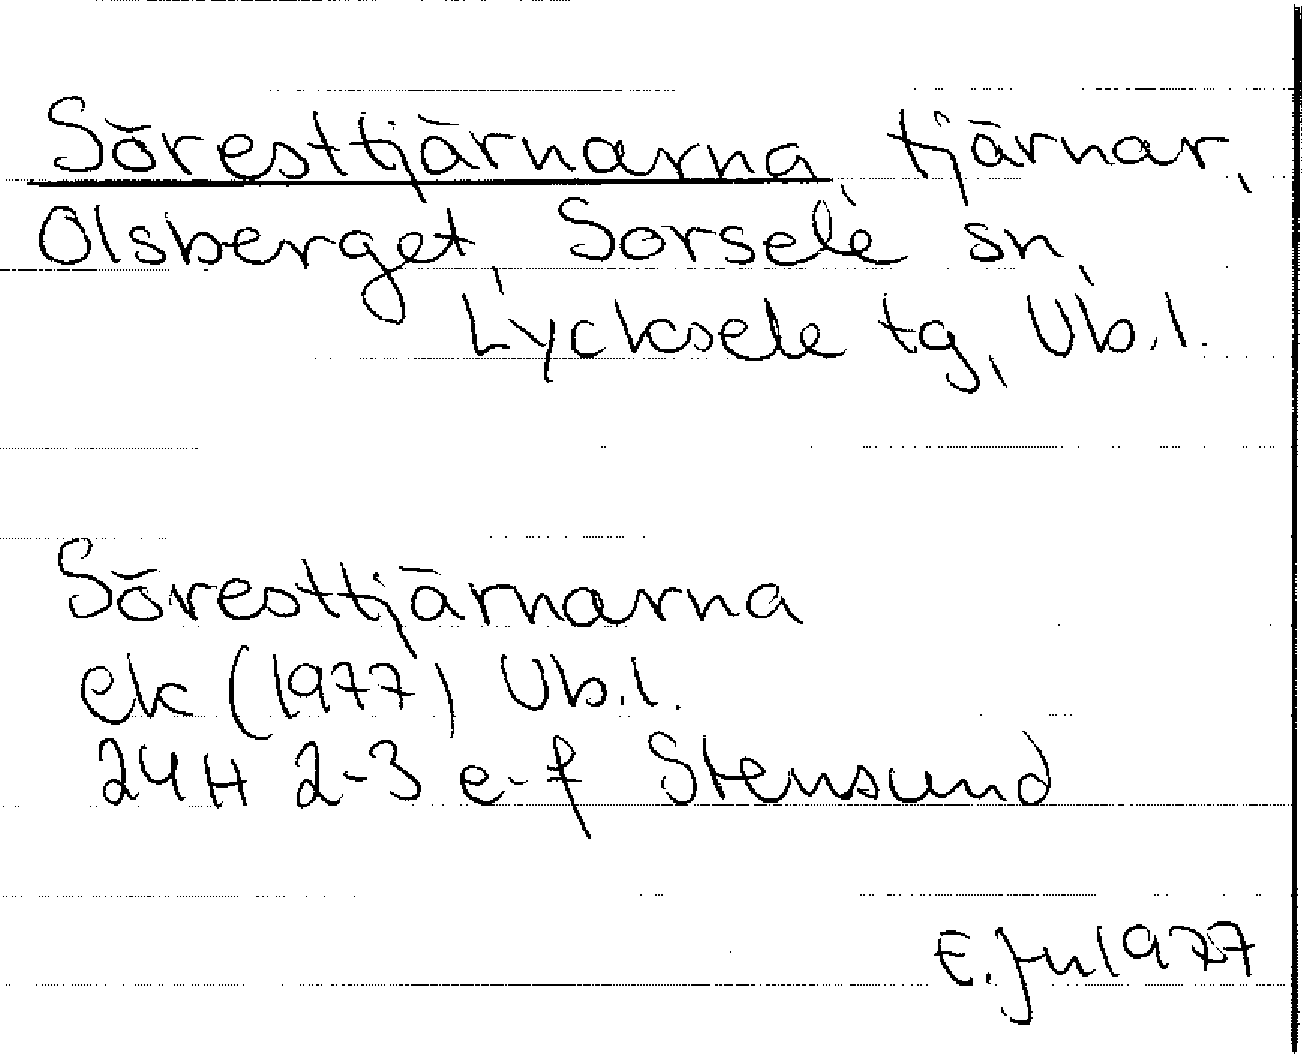 Söresttjärnarna, tjärnar,
Olsberget, Sorsele sn,
Lycksele tg, Vb.l.
Söresttjärnarna
ek (1977) Vb.l.
24H 2-3 e-f Stensund
E. Jn 1977